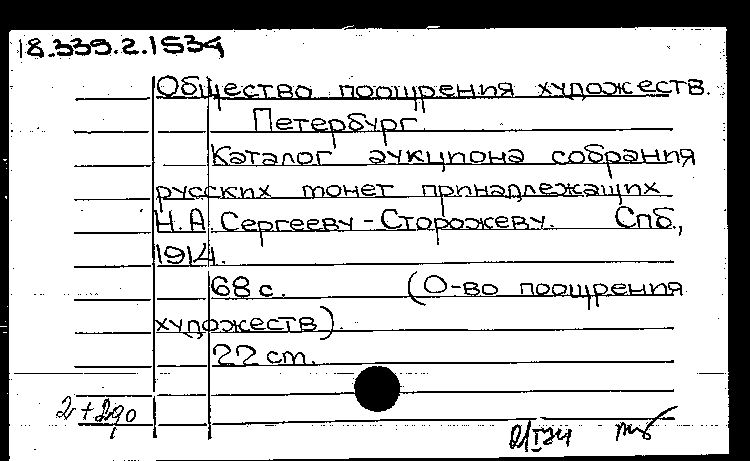 18.339.2.1534
Общество поощрения художеств.
Петербург.
Каталог аукциона собрания
русских монет принадлежащих
Н.А. Сергееву-Сторожеву. Спб.,
1914.
68 с. (О-во поощрения
художеств).
22 cm.